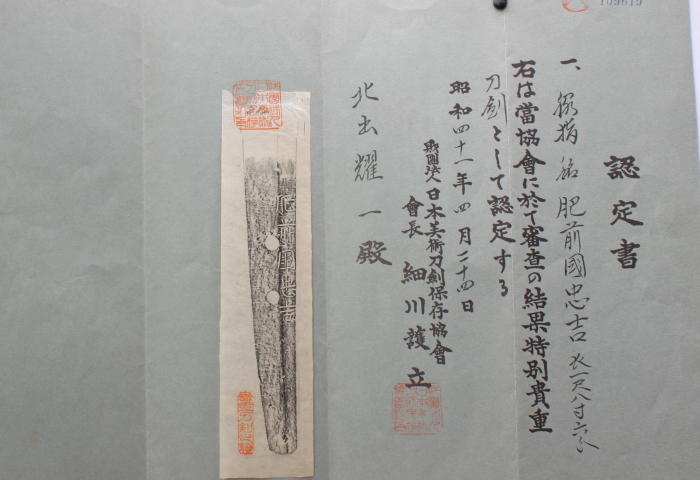 109619
認定書
一、脇指 銘 肥前國忠吉 長一尺八寸六分
右は當協會に於て審査の結果特別貴重
刀剣として認定する
昭和四十一年四月二十四日
財團法人日本美術刀剣保存協會
會長 細川護立
北出耀一殿
肥前國忠吉